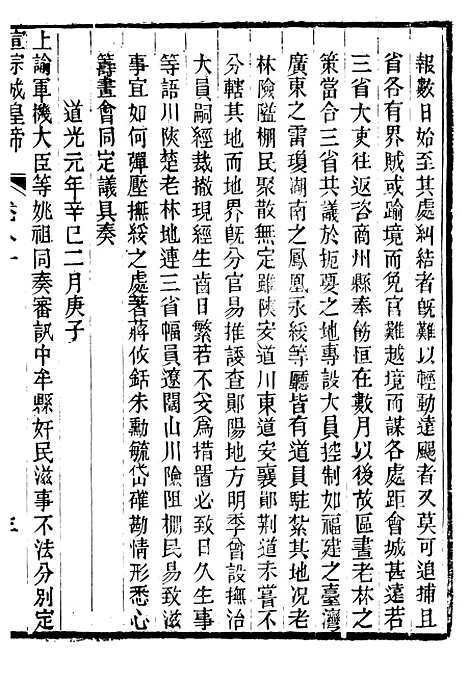 報數日始至其處糾結者旣難以輕動遠颺者又莫可追捕且
省各有界賊或踰境而免官難越境而謀各處距會城甚遠若
三省大吏往返咨商州縣奉飭恒在數月以後故區畫老林之
策當合三省共議於扼要之地專設大員控制如福建之臺灣
廣東之雷瓊湖南之鳳凰永綏等廳皆有道員駐紮其地况老
林險隘棚民聚散無定雖陝安道川東道安襄鄖荆道未嘗不
分轄其地而地界旣分官易推諉查鄖陽地方明季曾設撫治
大員嗣經裁撤現經生齒日繁若不㕛爲措置必致日久生事
等語川陝楚老林地連三省幅員遼闊山川險阻棚民易致滋
事宜如何彈壓撫綏之處著蔣攸銛朱勳毓岱確勘情形悉心
籌畫會同定議具奏
道光元年辛巳二月庚子
上諭軍機大臣等姚祖同奏審訊中牟縣奸民滋事不法分別定
宣宗成皇帝
三